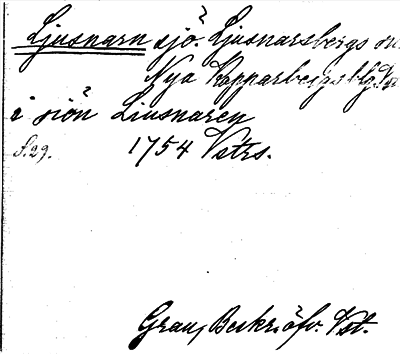 Ljusnarn sjö. Ljusnarsbergs sn.
Nya Kopparbergs blg.
i siön Liusnaren
S. 29. 1754 Vstrs.
Grau, Beskriöfv. Vst.